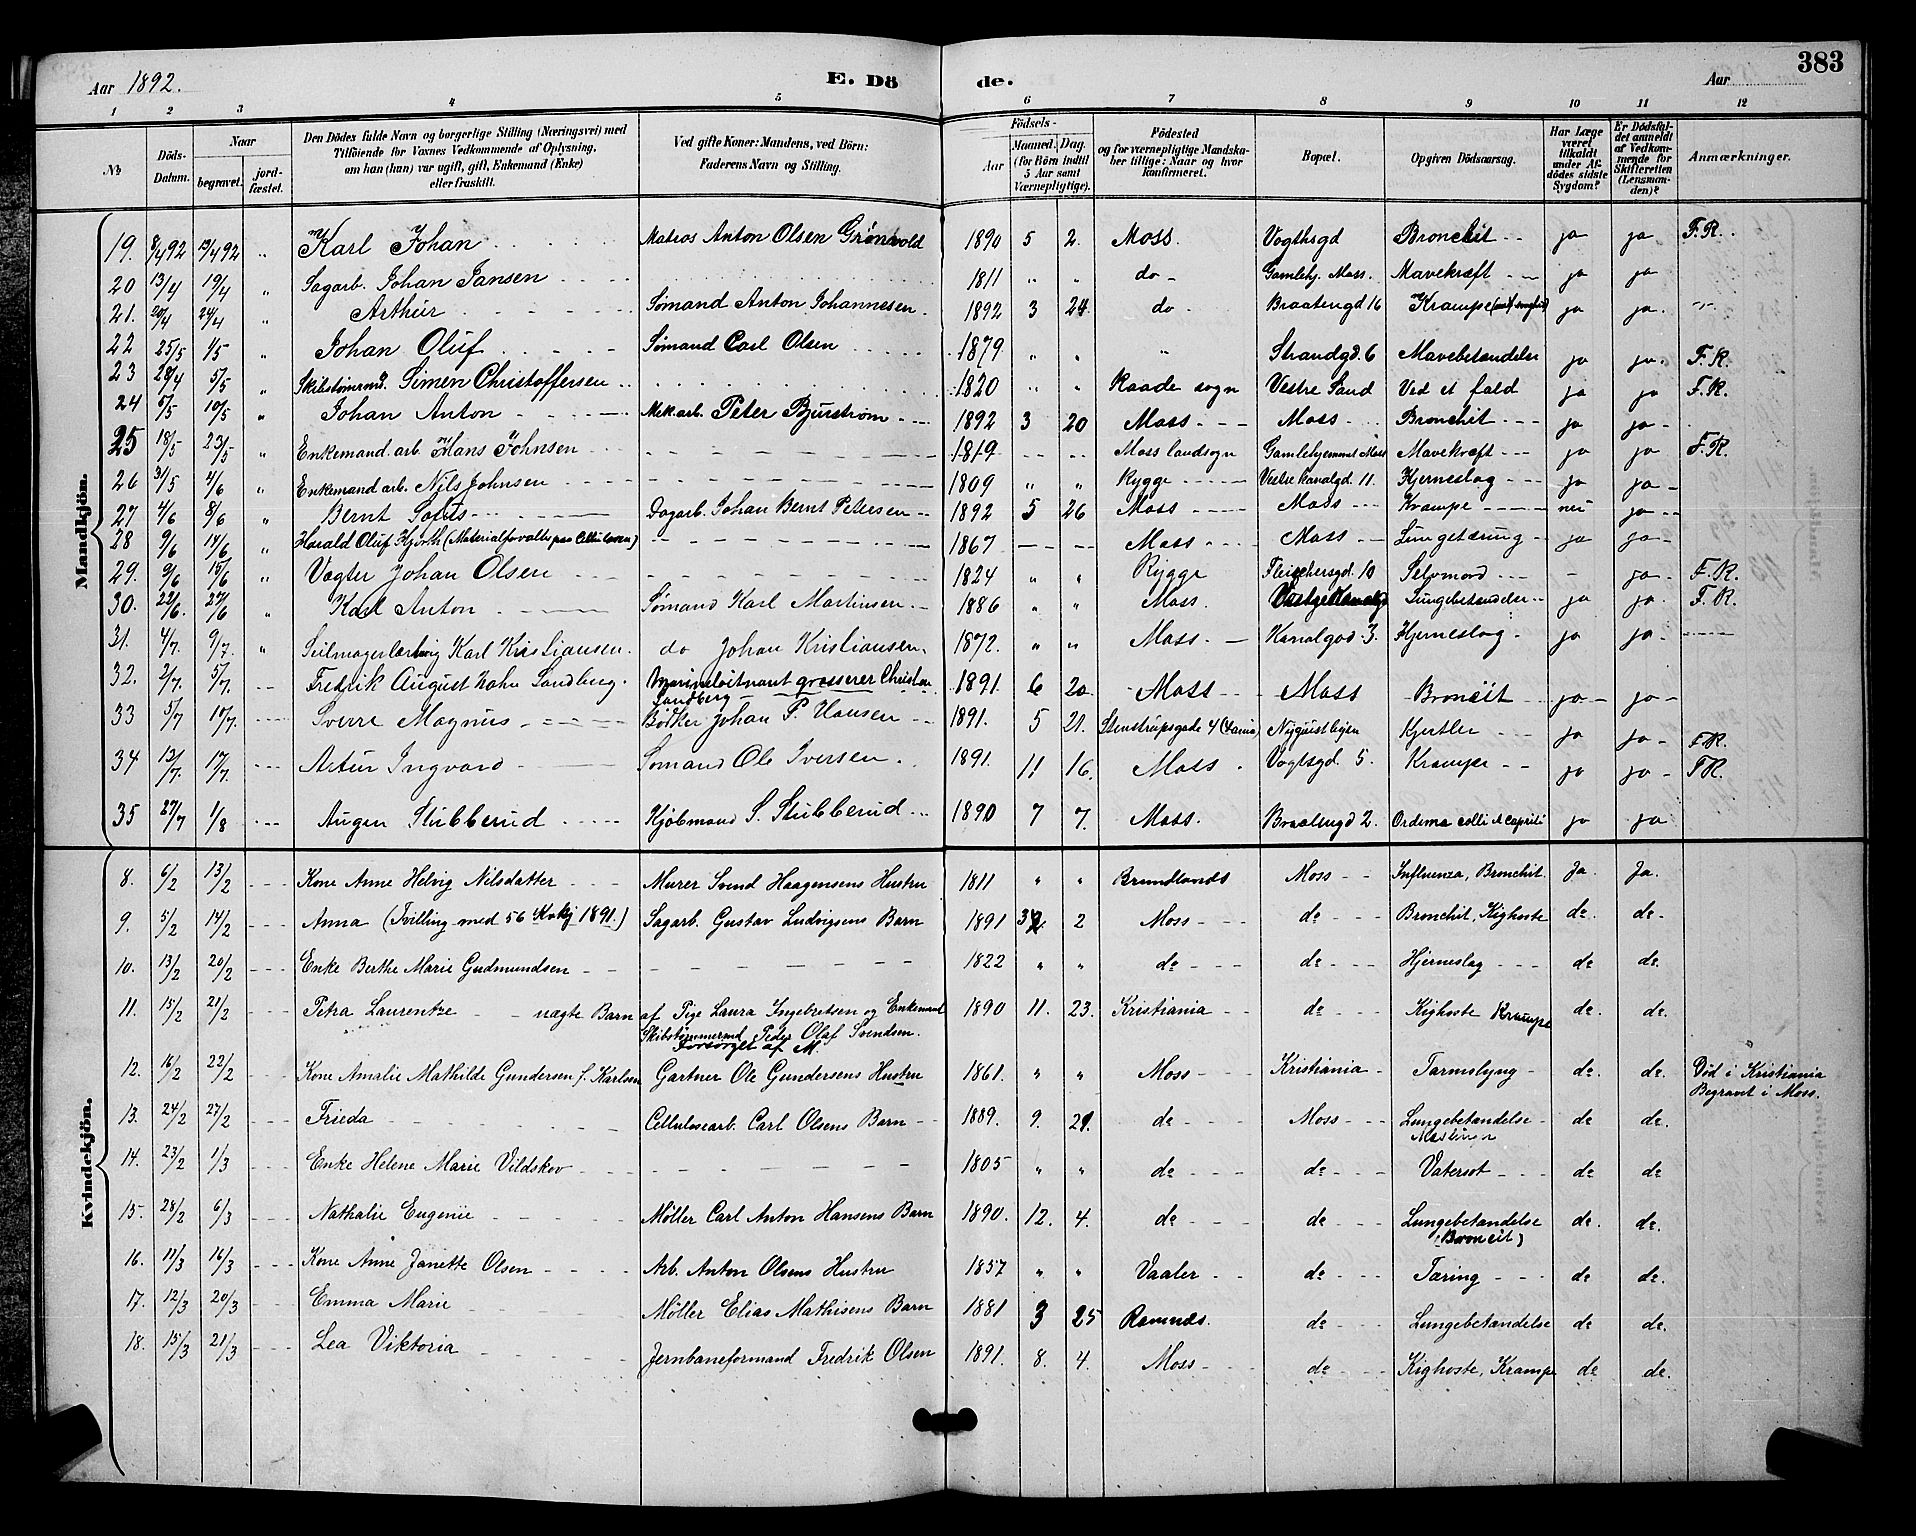 Aar 1892. E. Dö de. Aar 383
1 2 3 4 5 6 7 8 9 10 11 12
№ Döds-Datum. Naar begravet. jordfæstet. Den Dödes fulde Navn og borgerlige Stilling (Næringsvei) med Tilföiende for Voxnes Vedkommende af Oplysning, om han (hun) var ugift, gift, Enkemand (Enke) eller fraskilt. Ved gifte Koner: Mandens, ved Börn: Faderens Navn og Stilling. Födsels- Aar Maaned. Dag. (for Börn indtil 5 Aar samt Værnepligtige). Födested og for værnepligtige Mandskaber tillige: Naar og hvor konfirmeret. Bopæl. Opgiven Dödsaarsag. Har Læge været tilkaldt under Afdödes sidste Sygdom? Er Dödsfaldet anmeldt af Vedkommende for Skifteretten (Lensmanden)? Anmærkninger.
Mandkjön.
19. 8/4 92 13/4 92 „ Karl Johan Matros Anton Olsen Grønvold 1890 5 2. Moss. Vogthsgd Bronchit ja ja F.R.
20 13/4 19/4 „ Sagarb. Johan Jansen 1811 „ „ do Gamlehj. Moss. Mavekræft ja ja
21. 20/4 24/4 „ Arthur Sømand Anton Johannesen. 1892 3 24 do Braatengd 16 Krampe ja ja „
22 25/5 1/5 „ Johan Oluf Sømand Carl Olsen 1879 „ „ „ Strandgd. 6 Mavebetændelse ja ja F.R.
23 28/4 5/5 „ Skibstømrmd. Simen Christoffersen 1820 „ „ Raade sogn Vestre Sand Ved et fald ja ja F.R.
24 5/5 10/5 „ Johan Anton Mek.arb. Peter Bjurstrøm 1892 3 20 Moss Moss Bronchit ja ja
25 18/5 23/5 „ Enkemand. arb. Hans Johnsen 1819 Moss landsogn Gamlehjemmet Moss Mavekræft ja ja F.R.
26 31/5 4/6 „ Enkemand arb. Nils Johnsen 1809 „ „ Rygge Vestre kanalgd. 11. Hjerneslag ja ja
27 4/6 8/6 „ Bernt Dagarb. Johan Bernt Petersen 1892 5 26 Moss Moss Krampe nei ja
28 9/6 14/6 „ Harald Oluf Hjorth (Materialforvalter paa Cellulosen) 1867 Moss Moss Lungetæring ja ja
29. 9/6 15/6 „ Vægter Johan Olsen 1824 „ „ Rygge Fleischersgd. 10 Selvmord - ja F.R.
30. 22/6. 27/6 „ Karl Anton Sømand Karl Martinsen 1886 „ „ Moss. Lungebetændelse ja ja F.R.
31. 4/7. 9/7. „ Seilmagerlærling Karl Kristiansen. do Johan Kristiansen. 1872. „ „ Moss. Kanalgad 3. Hjerneslag ja ja
32. 2/7. 5/7. Fredrik August Hahn Sandberg. Marineløitnant grosserer Christian Sandberg 1891. 6 20 Moss Moss Broncit ja ja
33 5/7 10/7. Sverre Magnus Bødker Johan P. Hansen 1891. 5 21. Stenstrupsgade 4 Nyquistbyen Kjertler ja ja F.R.
34 13/7. 17/7. Artur Ingvard Sømand Ole Iversen 1891. 11 16. Moss Vogtsgd. 5. Krampe ja ja F.R.
35 27/7 1/8 Augen Stubberud Kjøbmand S. Stubberud 1890 7 7. Moss. Braatengd 2. ja ja
Kvindekjön.
8. 6/2 13/2 Kone Anne Helvig Nilsdatter Murer Svend Haagensens Hustru 1811 „ „ Moss Influenza, Bronchit. Ja. Ja.
9. 5/2 14/2 Anna (Tvilling med 56 Kvkj 1891.) Sagarb. Gustav Ludvigsens Barn 1891 2 Moss do Bronchit, Kighoste do do
10. 13/2 20/2 Enke Berthe Marie Gudmundsen 1822 „ „ do do Hjerneslag do do
11. 15/2 21/2 Petra Laurentze uægte Barn af Pige Laura Ingebretsen og Enkemand Skibstømmermd Peder Olaf Svendsen. Forsørget af M. 1890 11. 23. Kristiania do Kighoste Krampe do do
12. 16/2 22/2 Kone Amalie Mathilde Gundersen f. Karlsen Gartner Ole Gundersens Hustru 1861. „ „ Moss Kristiania Tarmslyng do do Død i Kristiania Begravet i Moss.
13. 24/2 27/2 Frieda Cellulosearb. Carl Olsens Barn 1889. 9. 21. do Moss Lungebetændelse Mæslinger do do
14. 23/2 1/3 Enke Helene Marie Vildskov 1805 „ „ do do Vatersot do do
15. 28/2 6/3 Nathalie Eugenie Møller Carl Anton Hansens Barn 1890. 12. 4. do do Lungebetændelse (Broncit) do do
16. 11/3 16/3 Kone Anne Janette Olsen Arb. Anton Olsens Hustru 1857 „ „ Vaaler do Tæring do do
17. 12/3 20/3 Emma Marie Møller Elias Mathisens Barn 1881 3 25 Ramnæs. do Lungebetændelse do do
18. 15/3 21/3 Lea Viktoria Jernbaneformand Fredrik Olsen 1891. 8. 4. Moss do Kighoste, Krampe do do